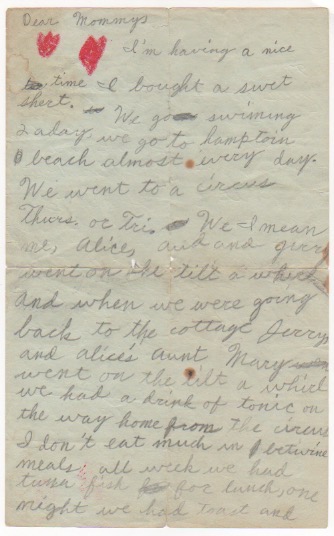 Dear Mommys
I'm having a nice
time I bought a swet
shert. We go swiming
2 a day. we go to hamptoin
beach almost every day.
We went to a circus
Thurs. or Fri. We - I mean
me, Alice, and and
went on the tilt a whirl
and when we were going
back to the cottage Jerry
and alices aunt Mary
went on the tilt a whirl
we had a drink of tonic on
the way home from the circus
I don't eat much in betwine
meals. all week we had
tuna fish for lunch, one
night we had toast and